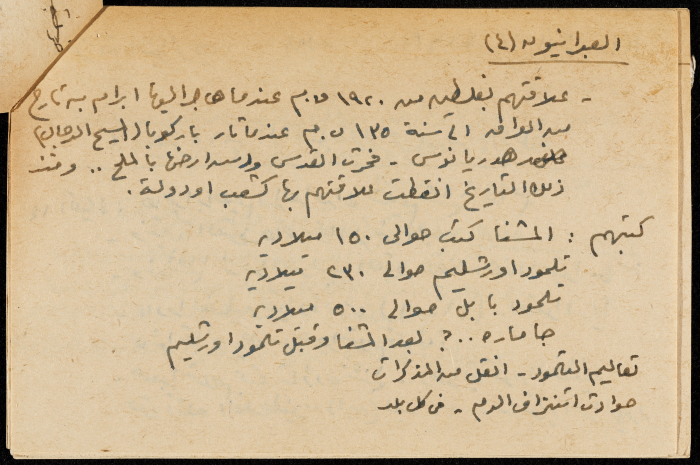 العبرانيون (٤)
- علاقتهم بفلسطين من ١٩٢٠ ق.م عندما هاجر اليها ابرام بن تارح
من العراق الى سنة ١٣٥ ب.م عندما ثار باركوبا (المسيح الدجال)
ضد هدريانوس - فخربت القدس ودرست ارضها بالملح .. ومنذ
ذلك التاريخ انقطعت علاقتهم بها كشعب او دولة .
كتبهم : المشنا كتب حوالى ١٥٠ ميلادية
تلمود اورشليم حوالى ٢٣٠ ميلادية
تلمود بابل حوالى ٥٠٠ ميلادية
جاماره ..؟ بعد المشنا وقبل تلمود اورشليم
تعاليم التلمود - انقل من المذكرات
حوادث استنزاف الدم - فى كل بلد